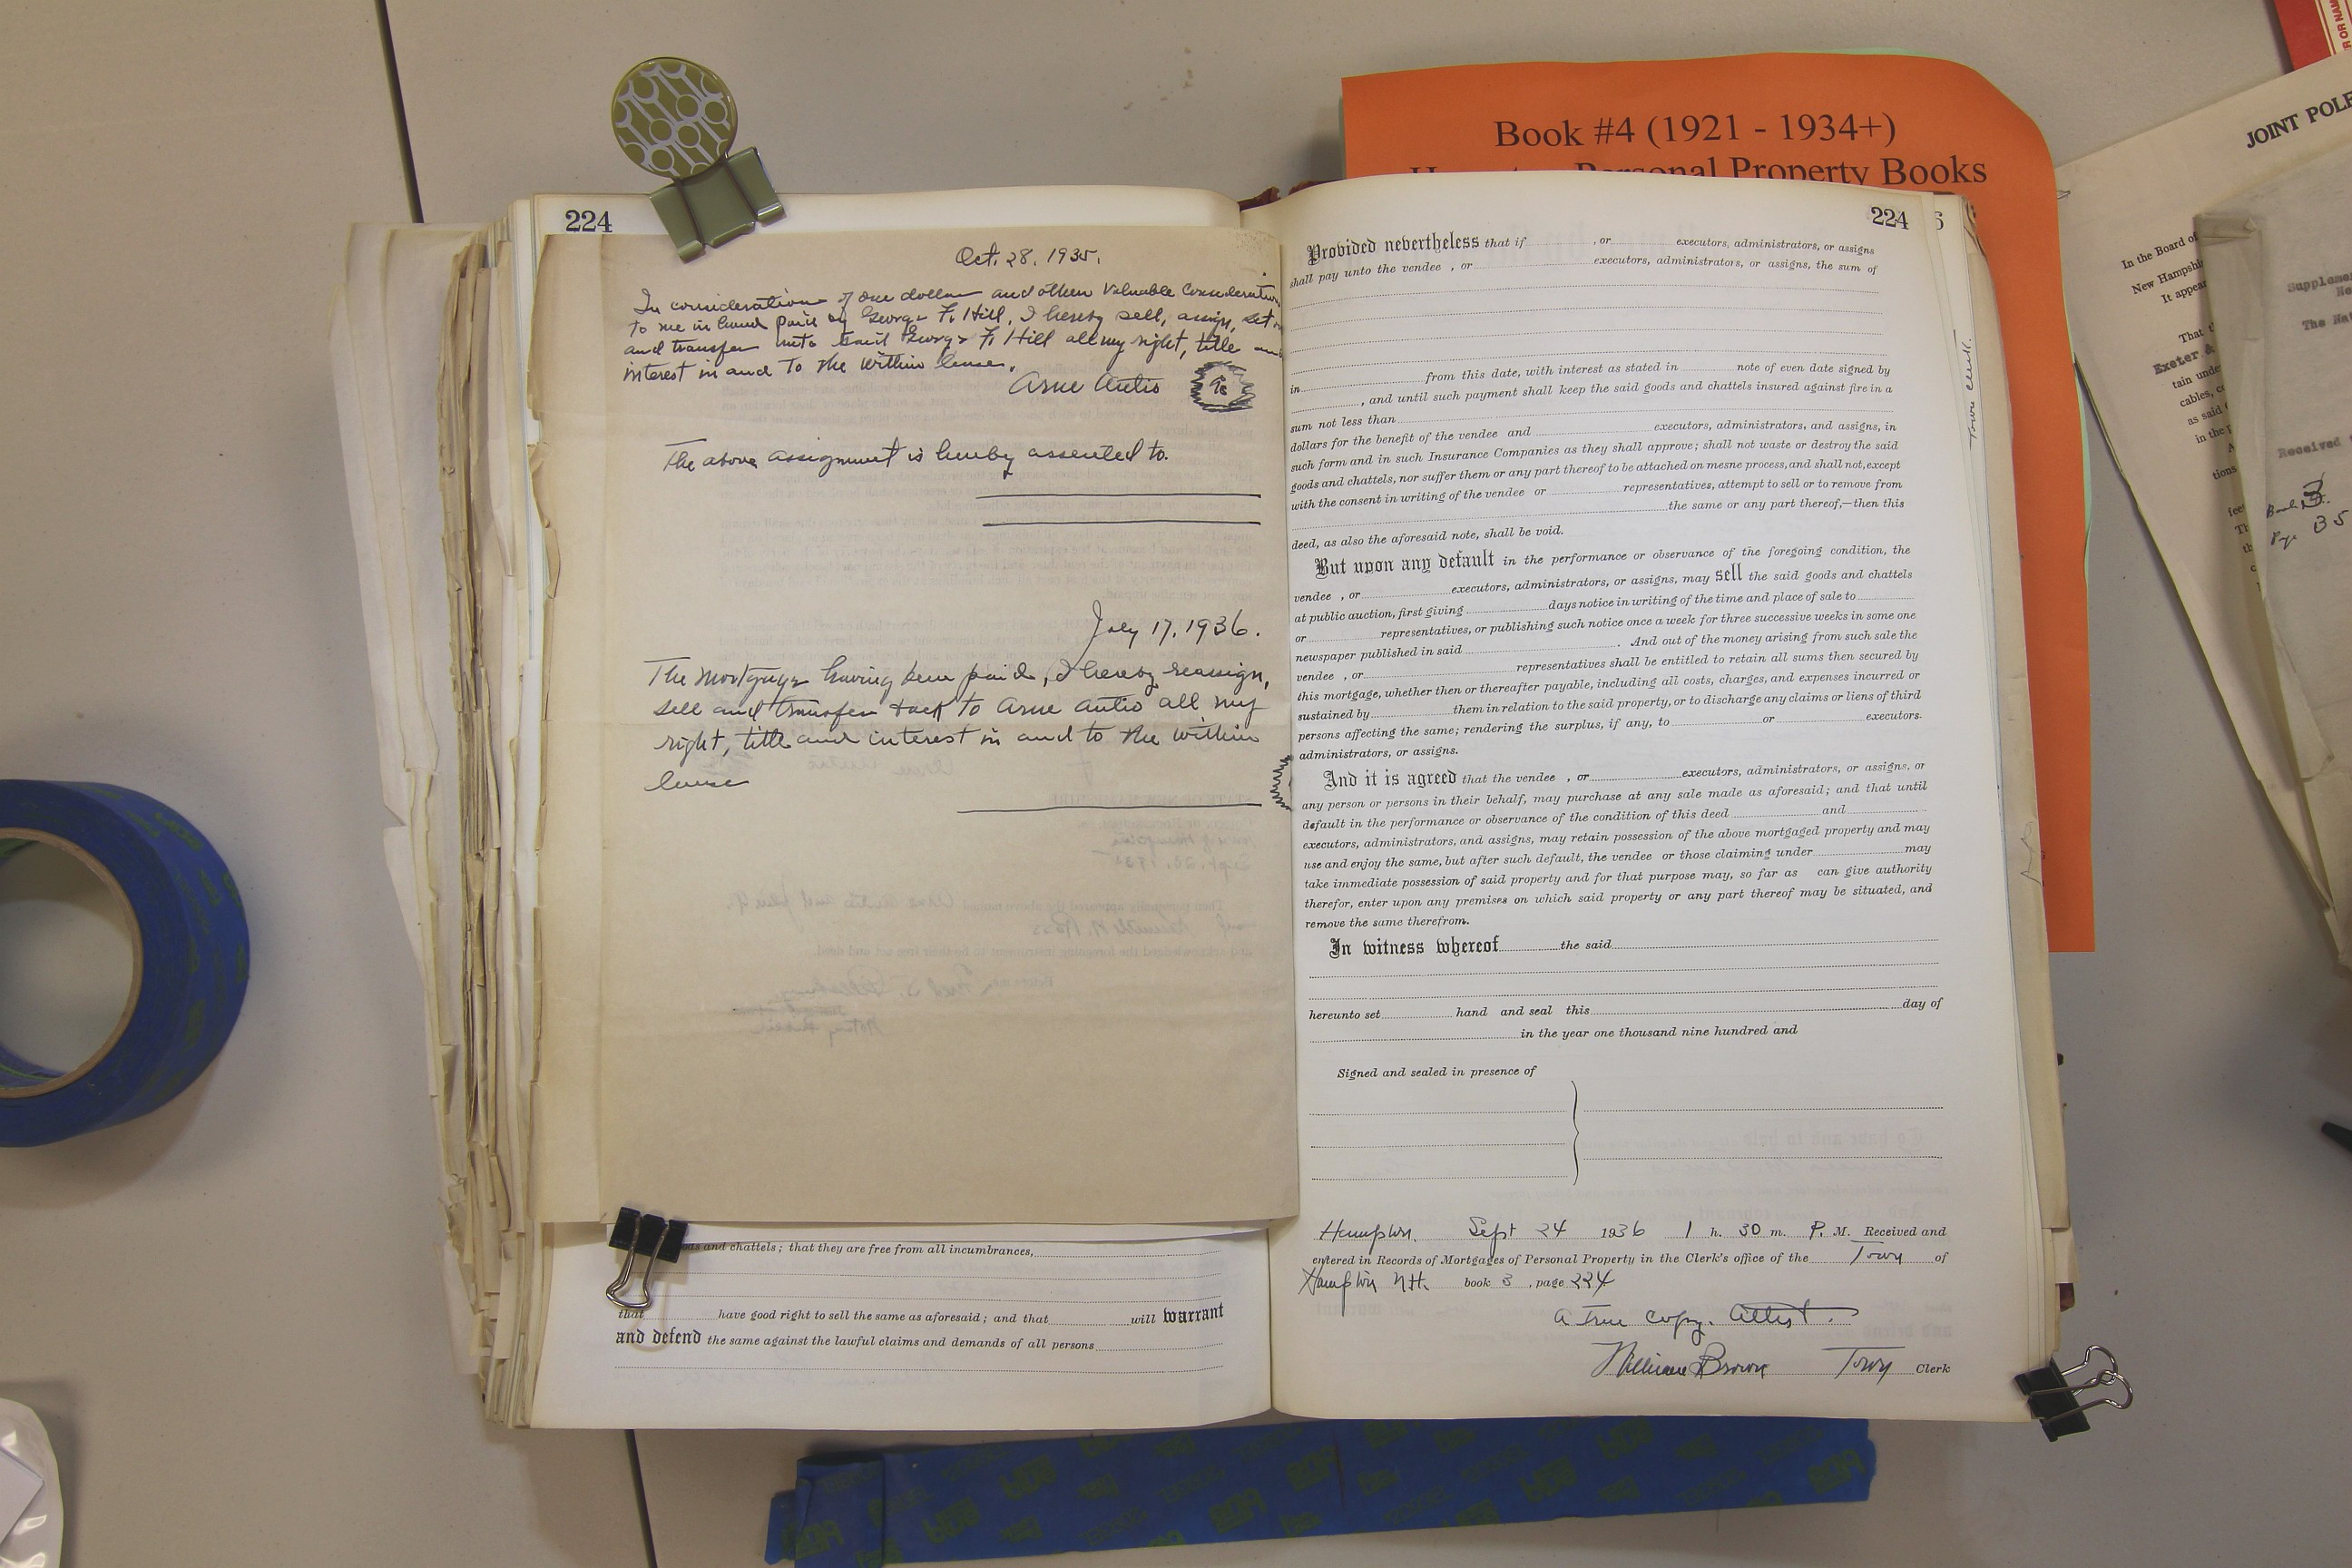 Book #4 (1921 - 1934+)
Personal Property Books
JOINT POLE
In the Board of
New Hampshir
It appear
That t
Exeter &
tain unde
cables, c
as said
in the p
tions
Supplemen
The Nat
Received
Book 3.
Pg. 35
224
Oct. 28, 1935.
In consideration of one dollar and other Valuable Consideration
to me in hand paid by George F. Hill, I hereby sell, assign, set
and transfer unto said George F. Hill all my right, title and
interest in and to the within lease.
Arne Autio
The above assignment is hereby assented to.
July 17, 1936.
The Mortgage having been paid, I hereby reassign,
sell and transfer back to Arne Autio all my
right, title and interest in and to the within
lease
ods and chattels; that they are free from all incumbrances,
that have good right to sell the same as aforesaid; and that will warrant
and defend the same against the lawful claims and demands of all persons
224
6
Town Clerk.
Provided nevertheless that if , or executors, administrators, or assigns
shall pay unto the vendee , or executors, administrators, or assigns, the sum of
in from this date, with interest as stated in note of even date signed by
, and until such payment shall keep the said goods and chattels insured against fire in a
sum not less than
dollars for the benefit of the vendee and executors, administrators, and assigns, in
such form and in such Insurance Companies as they shall approve; shall not waste or destroy the said
goods and chattels, nor suffer them or any part thereof to be attached on mesne process, and shall not, except
with the consent in writing of the vendee or representatives, attempt to sell or to remove from
the same or any part thereof,—then this
deed, as also the aforesaid note, shall be void.
But upon any default in the performance or observance of the foregoing condition, the
vendee , or executors, administrators, or assigns, may sell the said goods and chattels
at public auction, first giving days notice in writing of the time and place of sale to
or representatives, or publishing such notice once a week for three successive weeks in some one
newspaper published in said . And out of the money arising from such sale the
vendee , or representatives shall be entitled to retain all sums then secured by
this mortgage, whether then or thereafter payable, including all costs, charges, and expenses incurred or
sustained by them in relation to the said property, or to discharge any claims or liens of third
persons affecting the same; rendering the surplus, if any, to or executors.
administrators, or assigns.
And it is agreed that the vendee , or executors, administrators, or assigns, or
any person or persons in their behalf, may purchase at any sale made as aforesaid; and that until
default in the performance or observance of the condition of this deed and
executors, administrators, and assigns, may retain possession of the above mortgaged property and may
use and enjoy the same, but after such default, the vendee or those claiming under may
take immediate possession of said property and for that purpose may, so far as can give authority
therefor, enter upon any premises on which said property or any part thereof may be situated, and
remove the same therefrom.
In witness whereof the said
hereunto set hand and seal this day of
in the year one thousand nine hundred and
Signed and sealed in presence of
Hampton. Sept 24 1936 1 h. 30 m. P. M. Received and
entered in Records of Mortgages of Personal Property in the Clerk's office of the Town of
Hampton N.H. book 3 , page 224
A True Copy. Attest.
William Brown Town Clerk